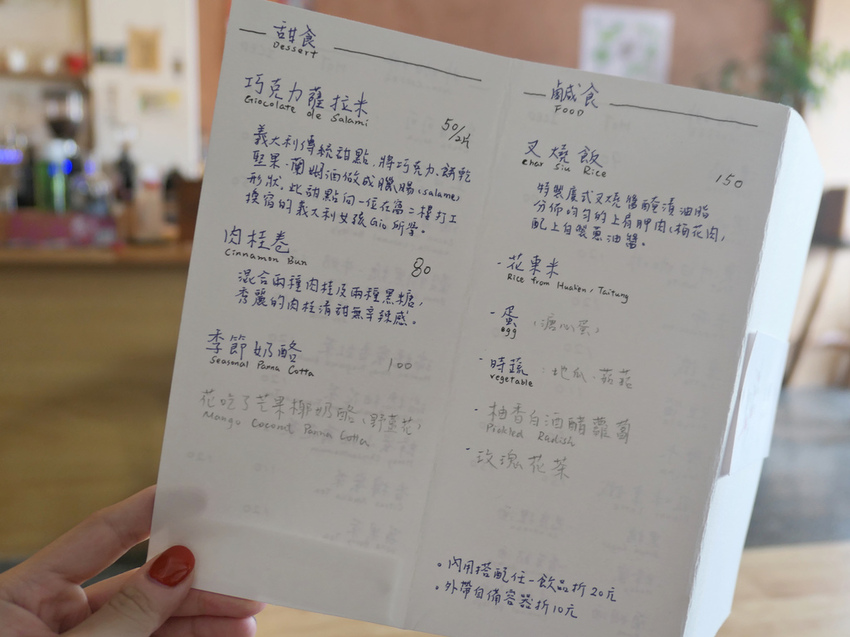 甜食
Dessert
巧克力薩拉米
Ciocolate de Salami
50/2片
義大利傳統甜點,將巧克力、餅乾
堅果、蘭姆酒做成臘腸(salame)
形狀。此甜點向一位在富二樓打工
換宿的義大利女孩Gio所學。
肉桂卷
Cinnamon Bun
80
混合兩種肉桂及兩種黑糖,
秀麗的肉桂清甜無辛辣感。
季節奶酪
Seasonal Panna Cotta
100
花吃了芒果椰奶酪(野薑花)
Mango Coconut Panna Cotta
鹹食
FOOD
叉燒飯
Char Siu Rice
150
特製廣式叉燒醬醃漬油脂
分佈均勻的上肩胛肉(梅花肉),
配上自製蔥油醬。
·花東米
Rice from Hualien, Taitung
·蛋(溏心蛋)
egg
·時蔬:地瓜、菇菇
vegetable
·柚香白酒醋蘿蔔
Pickled Radish
·玫瑰花茶
。內用搭配任一飲品折20元
。外帶自備容器折10元